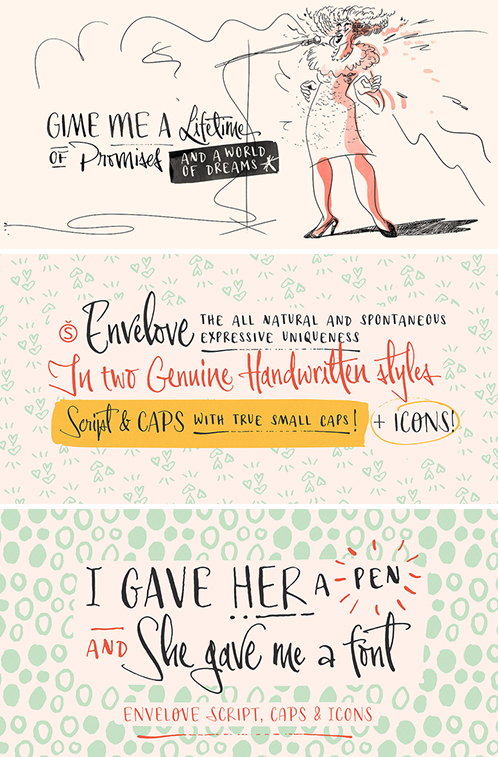 GIME ME A Lifetime
OF Promises AND A WORLD
OF DREAMS
Š Envelove THE ALL NATURAL AND SPONTANEOUS
EXPRESSIVE UNIQUENESS
In two Genuine Handwritten styles
Script & CAPS WITH TRUE SMALL CAPS! + ICONS!
I GAVE HER A PEN
AND She gave me a font
ENVELOVE SCRIPT, CAPS & ICONS